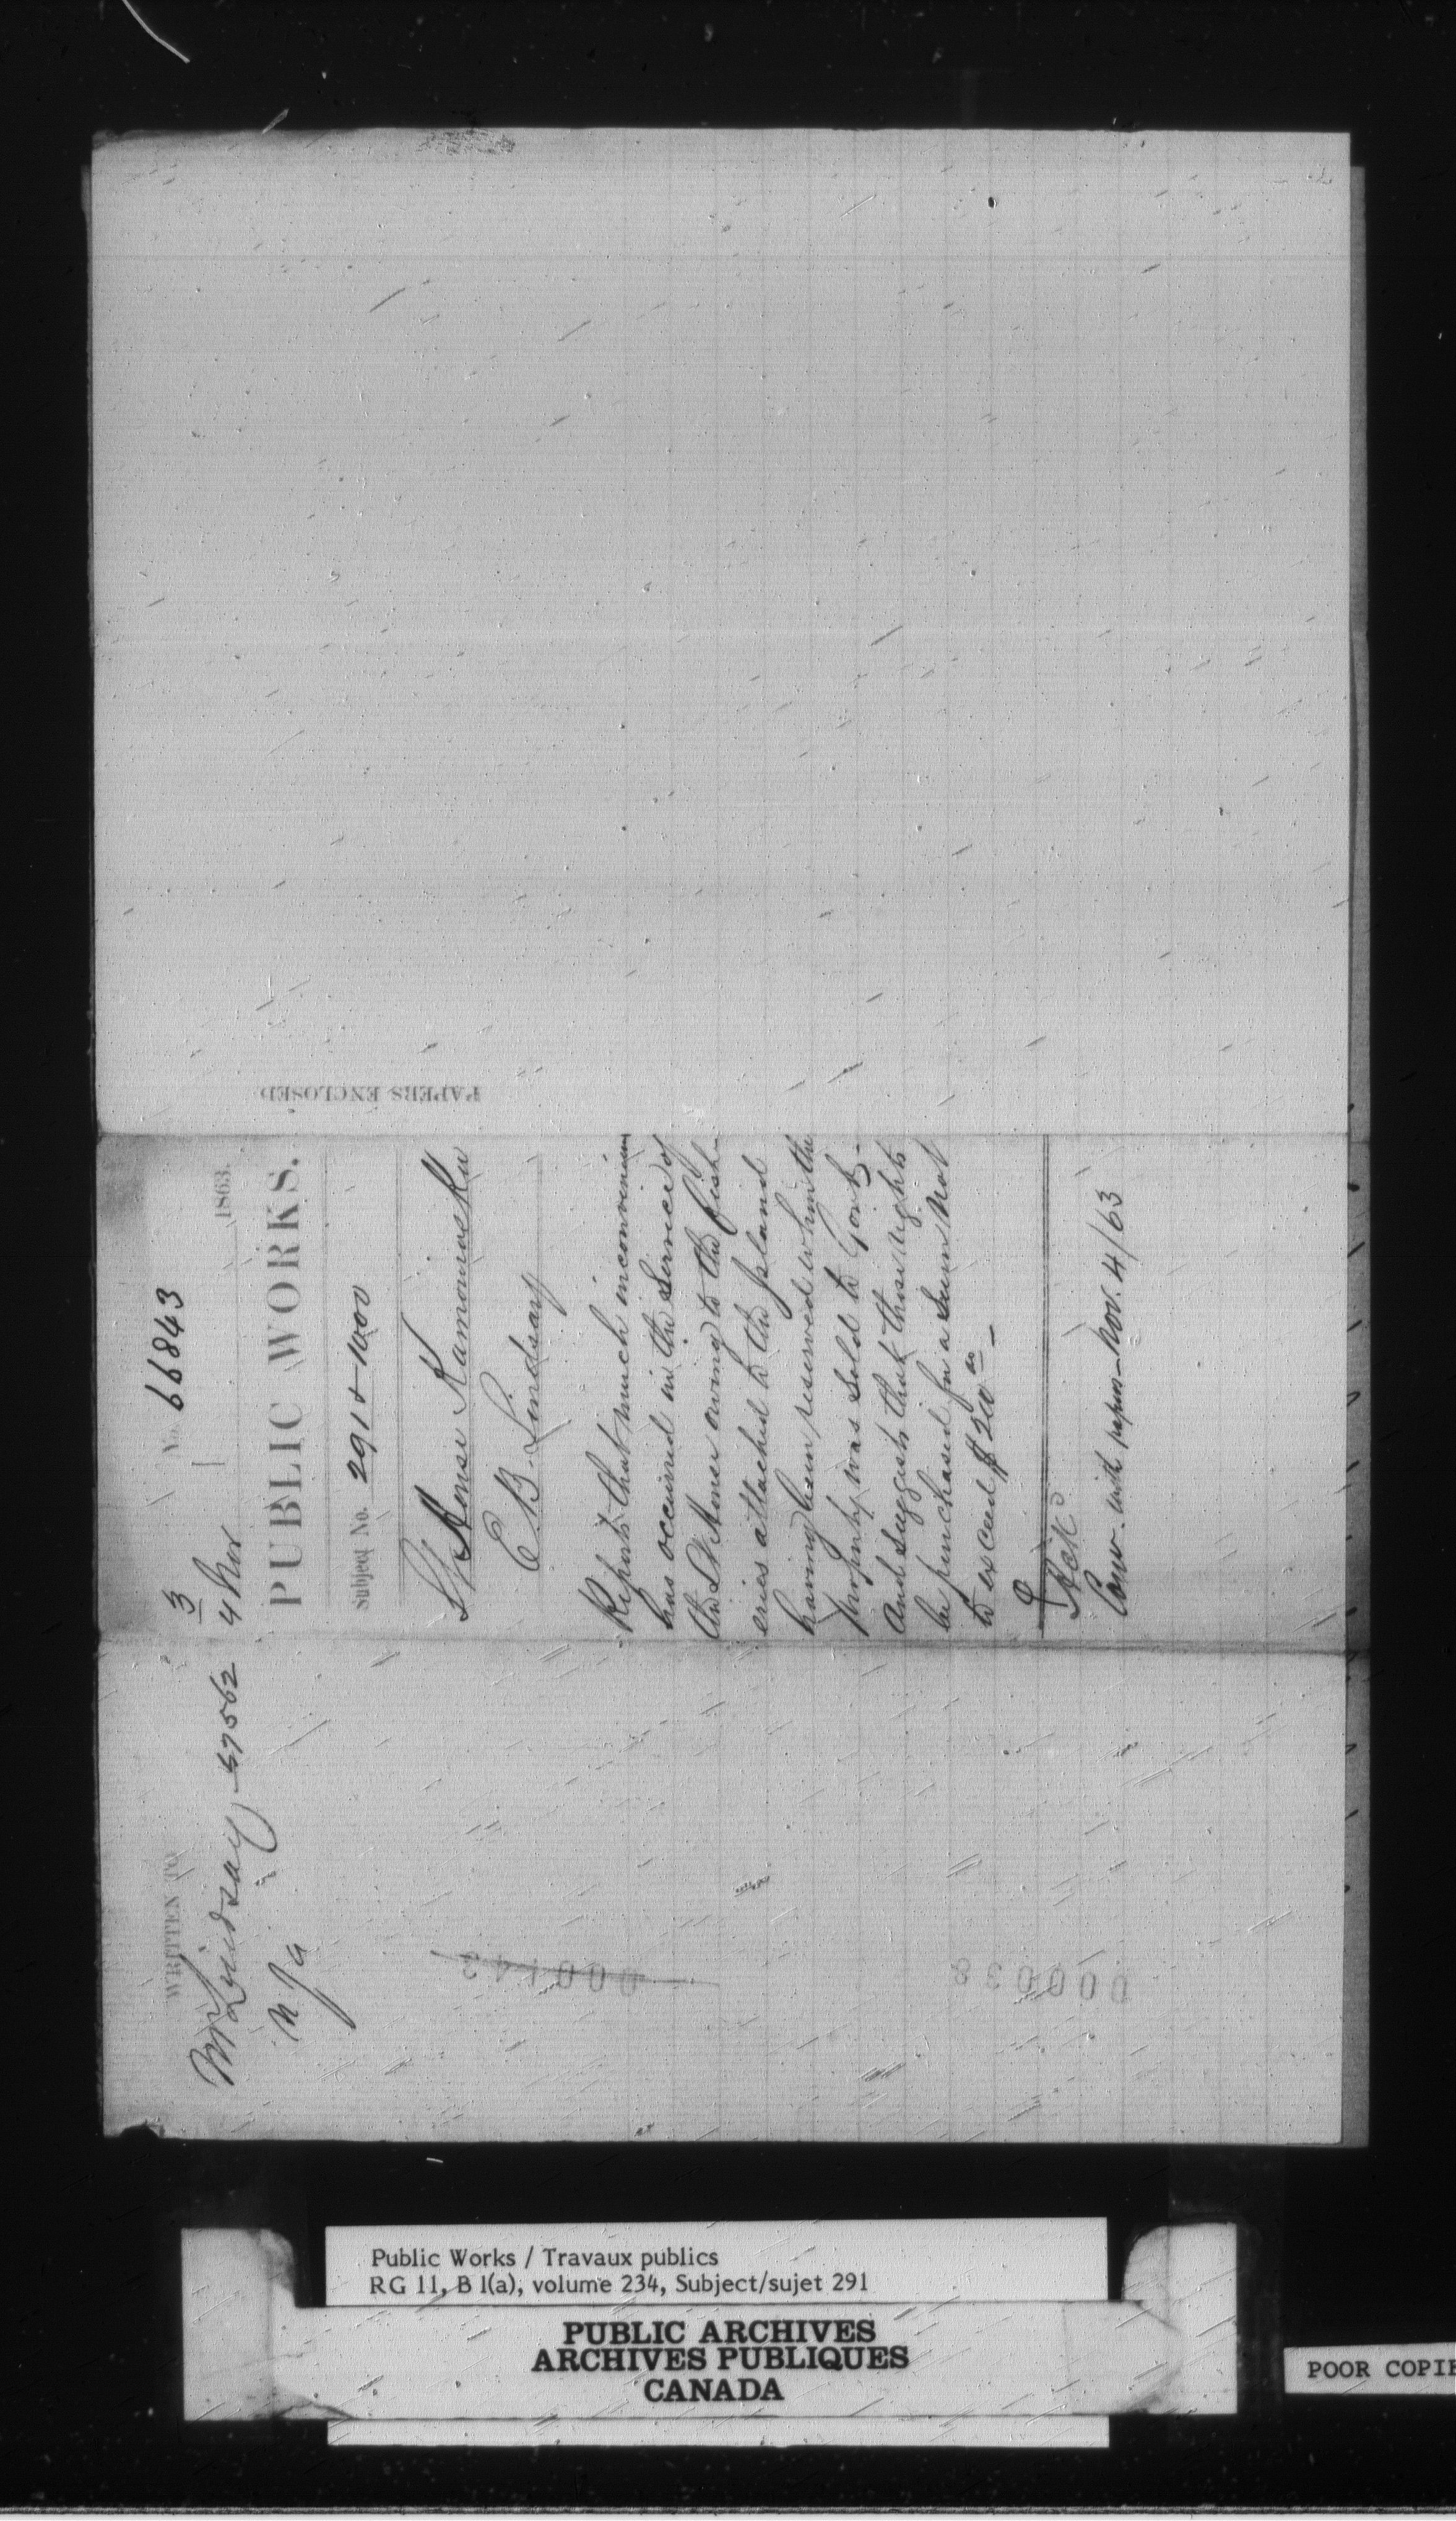 No. 66843
3
4 Nov
1863.
PUBLIC WORKS.
Subject No. 291 + 1000
Lt House Kamouraska
E. B. Lindsay
Reports that much inconvenience
has occurred in the Service of
the Lt House owing to the fish-
eries attached to the Island
having been reserved when the
Property was Sold to Govt.
And Suggests that those rights
be purchased for a Sum not
to exceed $200.00 —
Ackd
Comr. with papers — Nov. 4/63
PAPERS ENCLOSED
WRITTEN TO
Mr Lindsay 57562
000142
00032
Public Works / Travaux publics
RG 11, B 1(a), volume 234, Subject/sujet 291
PUBLIC ARCHIVES
ARCHIVES PUBLIQUES
CANADA
POOR COPIE